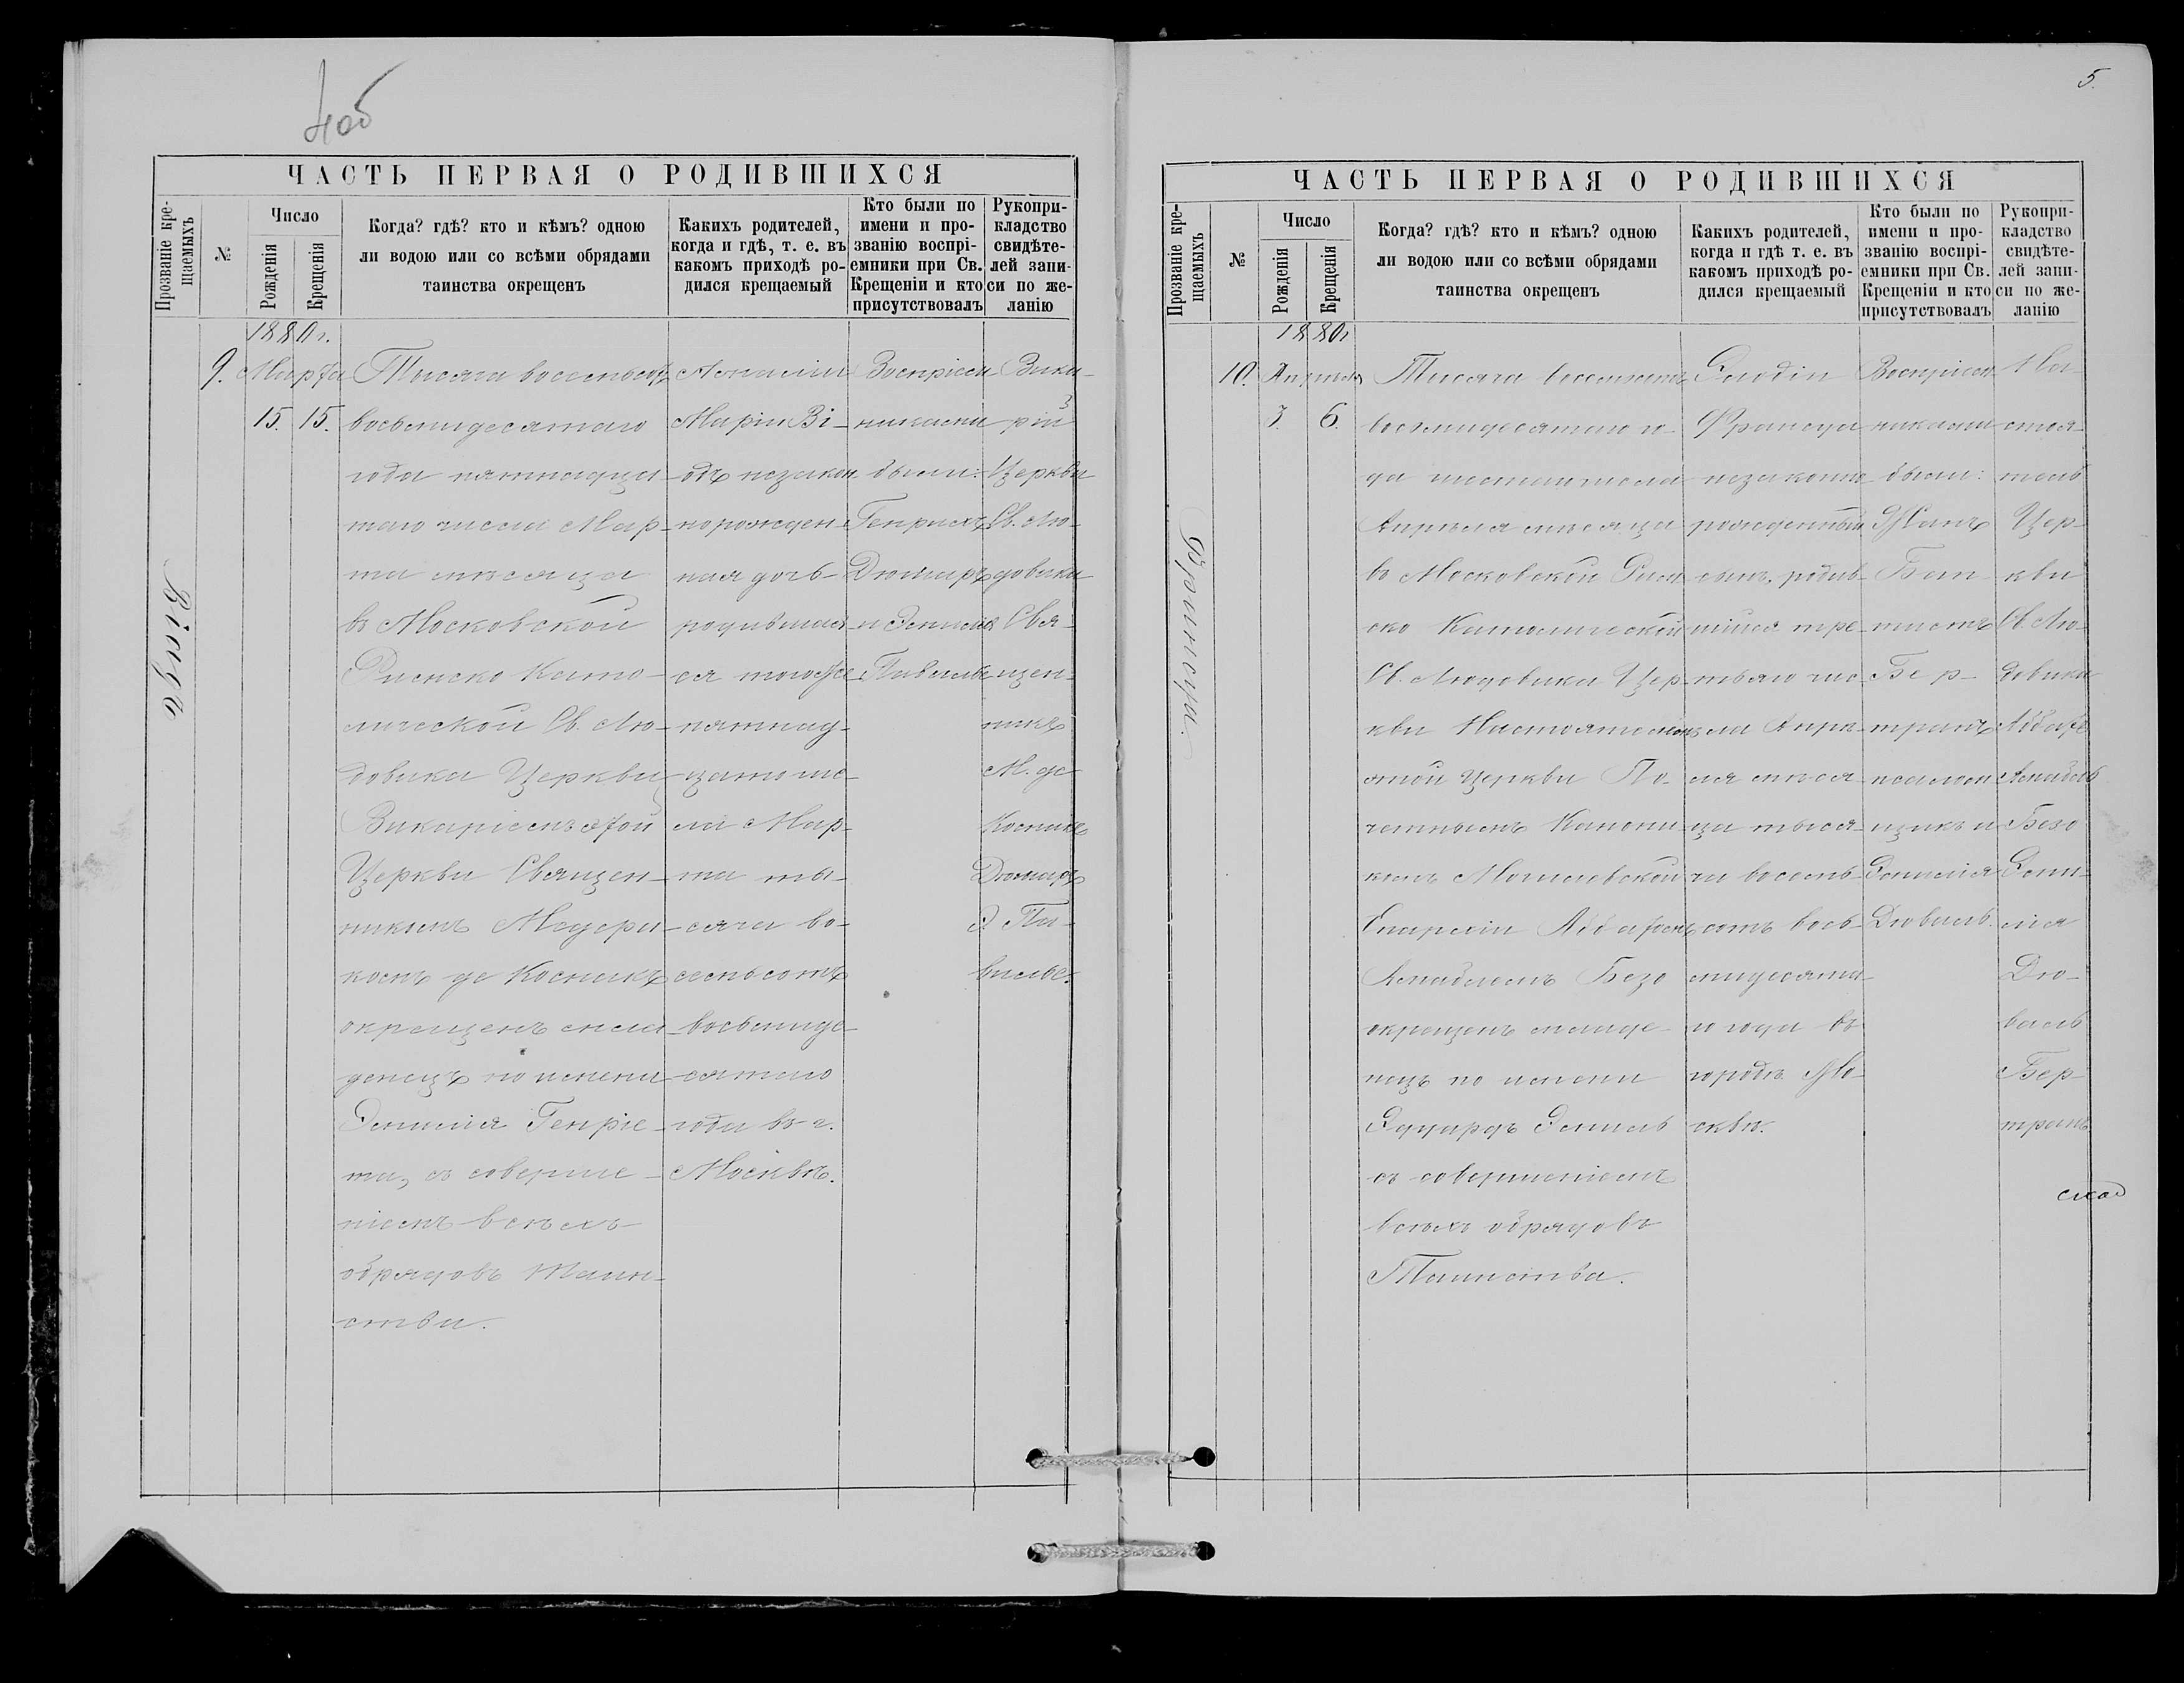 4об
ЧАСТЬ ПЕРВАЯ О РОДИВШИХСЯ
Прозваніе кре-
щаемыхъ
№
Число
Рожденія
Крещенія
Когда? гдѣ? кто и кѣмъ? одною
ли водою или со всѣми обрядами
таинства окрещенъ
Какихъ родителей,
когда и гдѣ, т. е. въ
какомъ приходѣ ро-
дился крещаемый
Кто были по
имени и про-
званію воспрі-
емники при Св.
Крещеніи и кто
присутствовалъ
Рукопри-
кладство
свидѣте-
лей запи-
си по же-
ланію
1880 г.
9.
Марта
15. 15.
Тысяча восемьсотъ
восьмидесятаго
года пятнадца-
таго числа Мар-
та мѣсяца
въ Московской
Римско Като-
лической Св. Лю-
довика Церкви
Викаріемъ этой
Церкви Священ-
никомъ Медери-
комъ де Коснакъ
окрещенъ мла-
денецъ по имени
Эмилія Генріе-
та, съ соверше-
ніемъ всѣхъ
обрядовъ Таин-
ства.
Маріи Ві-
одъ незакон-
норожден-
ная дочь
родившая-
ся того же
пятнад-
цатого чис-
ла Мар-
та ты-
сяча во-
семьсотъ
восьмиде-
сятаго
года въ г.
Москвѣ.
Воспріем-
никами
были:
Генрихъ
Дюмаръ
и Эмилія
Вика-
рій
Церкви
Св. Лю-
довика
Свя-
щен-
никъ
М. де
Коснакъ
Дюмаръ
Э. Пи-
5.
ЧАСТЬ ПЕРВАЯ О РОДИВШИХСЯ
Прозваніе кре-
щаемыхъ
№
Число
Рожденія
Крещенія
Когда? гдѣ? кто и кѣмъ? одною
ли водою или со всѣми обрядами
таинства окрещенъ
Какихъ родителей,
когда и гдѣ т. е. въ
какомъ приходѣ ро-
дился крещаемый
Кто были по
имени и про-
званію воспрі-
емники при Св.
Крещеніи и кто
присутствовалъ
Рукопри-
кладство
свидѣте-
лей запи-
си по же-
ланію
1880 г
Франсуа.
10.
Апрѣля
3 6.
Тысяча восемьсотъ
восьмидесятаго го-
да шестаго числа
Апрѣля мѣсяца
въ Московской Рим-
ско Католической
Св. Людовика Цер-
кви Настоятелемъ
этой Церкви По-
четнымъ Канони-
комъ Могилевской
Епархіи Аббатомъ
Амаблемъ Безо
окрещенъ младе-
нецъ по имени
Эдуардъ Эмиль
съ совершеніемъ
всѣхъ обрядовъ
Таинства.
Франсуа
незаконно
рожденный
сынъ, родив-
шійся тре-
тьяго чис-
ла Апрѣ-
ля мѣся-
ца тыся-
ча восемь-
сотъ вось-
мидесята-
го года въ
городѣ Мо-
сквѣ.
Воспріем-
никами
были:
Жанъ
Бап-
тистъ
Бер-
транъ
псалом-
щикъ и
Эмилія
Дюваль.
На-
стоя-
тель
Цер-
кви
Св. Лю-
довика
Аббатъ
Амабль
Безо
Эми-
лія
Дю-
валь
Бер-
транъ